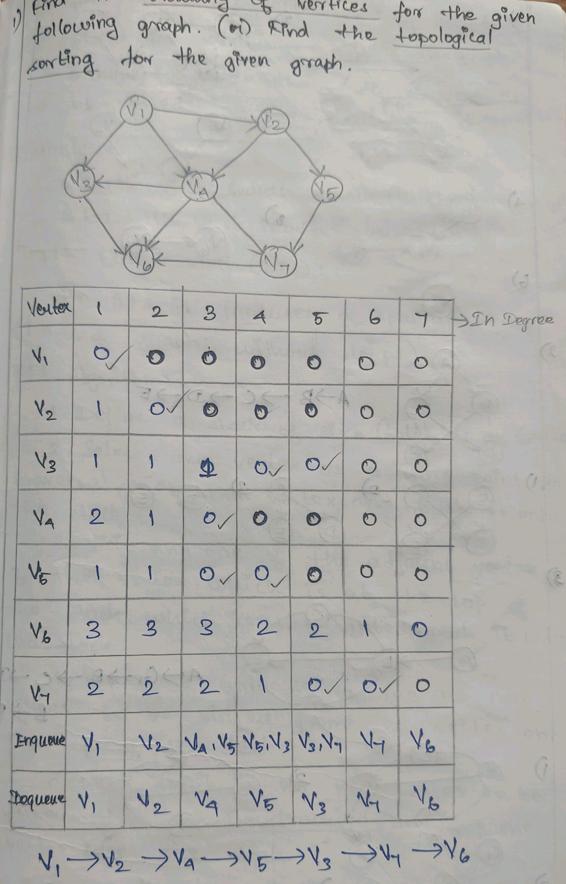 1) Find of vertices for the given
following graph. (or) Find the topological
sorting for the given graph.
V1
V2
V3
V4
V5
V6
V7
Vertex 1 2 3 4 5 6 7 →In Degree
V1 0✓ 0 0 0 0 0 0
V2 1 0✓ 0 0 0 0 0
V3 1 1 1 0✓ 0✓ 0 0
V4 2 1 0✓ 0 0 0 0
V5 1 1 0✓ 0✓ 0 0 0
V6 3 3 3 2 2 1 0
V7 2 2 2 1 0✓ 0✓ 0
Enqueue V1 V2 V4,V5 V5,V3 V3,V7 V7 V6
Dequeue V1 V2 V4 V5 V3 V7 V6
V1 →V2 →V4 →V5 →V3 →V7 →V6